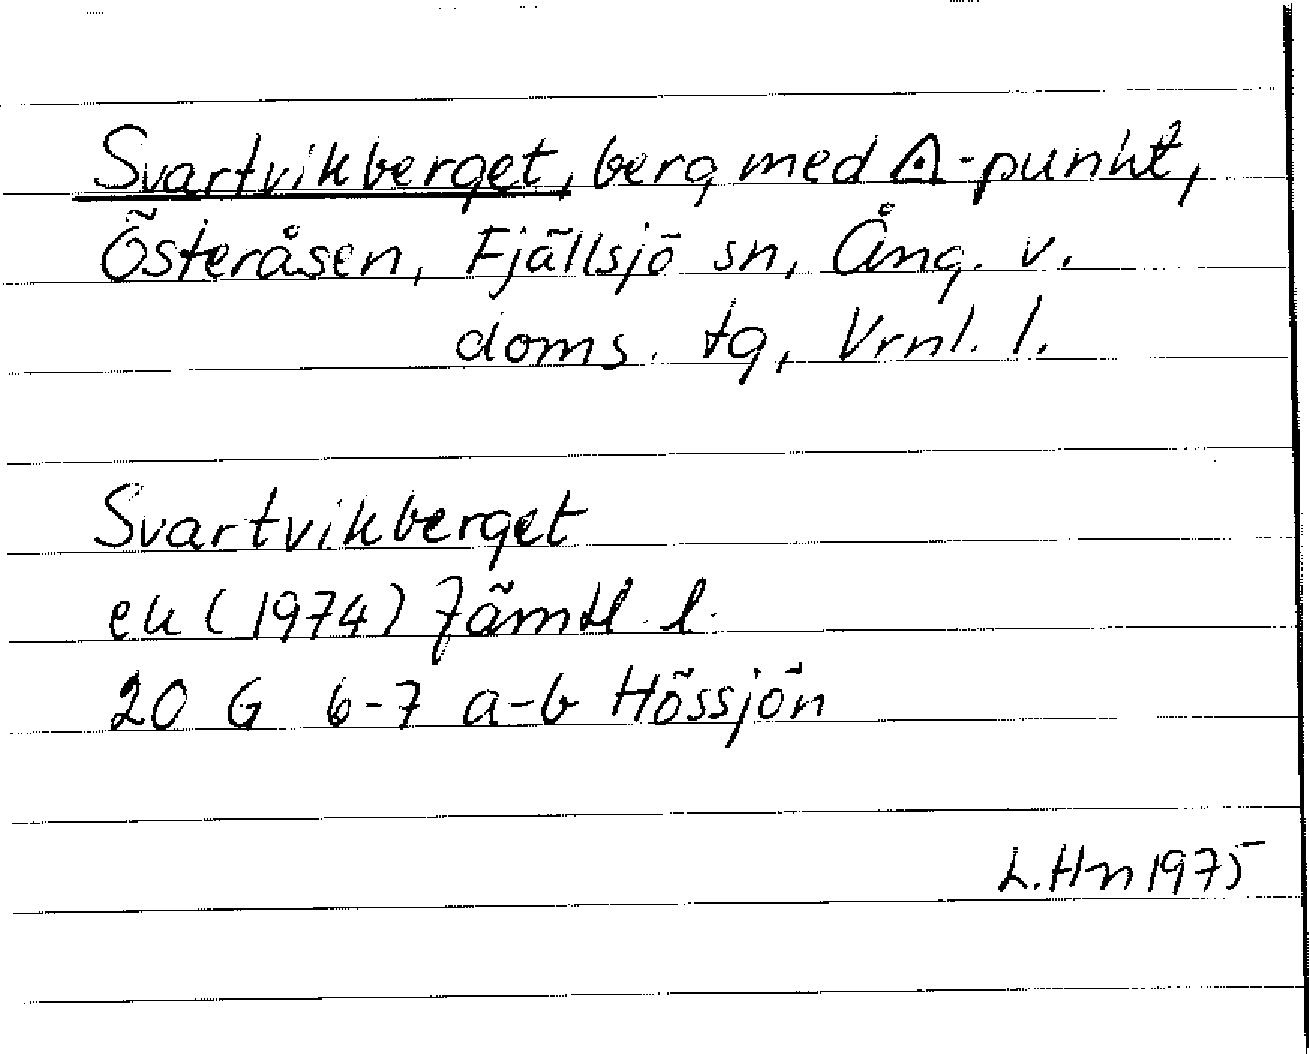 Svartvikberget, berg med △-punkt,
Österåsen, Fjällsjö sn, Ång. v.
doms. tg, Vrnl. l.
Svartvikberget
ek (1974) Jämtl. l.
20 G 6-7 a-b Hössjön
L.Hn 1975